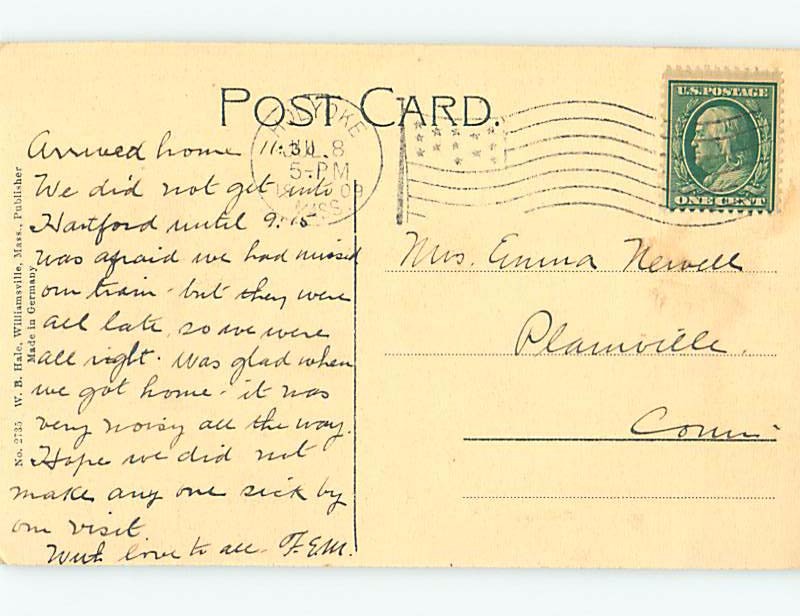 POST CARD.
HOLYOKE
JUL 8
5-PM
09
MASS.
U.S. POSTAGE
ONE CENT
Arrived home 11:30
We did not get into
Hartford until 9:15
was afraid we had missed
our train - but they were
all late, so we were
all right. Was glad when
we got home - it was
very noisy all the way.
Hope we did not
make any one sick by
our visit
With love to all - F.E.M.
Mrs. Emma Newell
Plainville.
Conn.
No. 2735 W. B. Hale, Williamsville, Mass., Publisher
Made in Germany